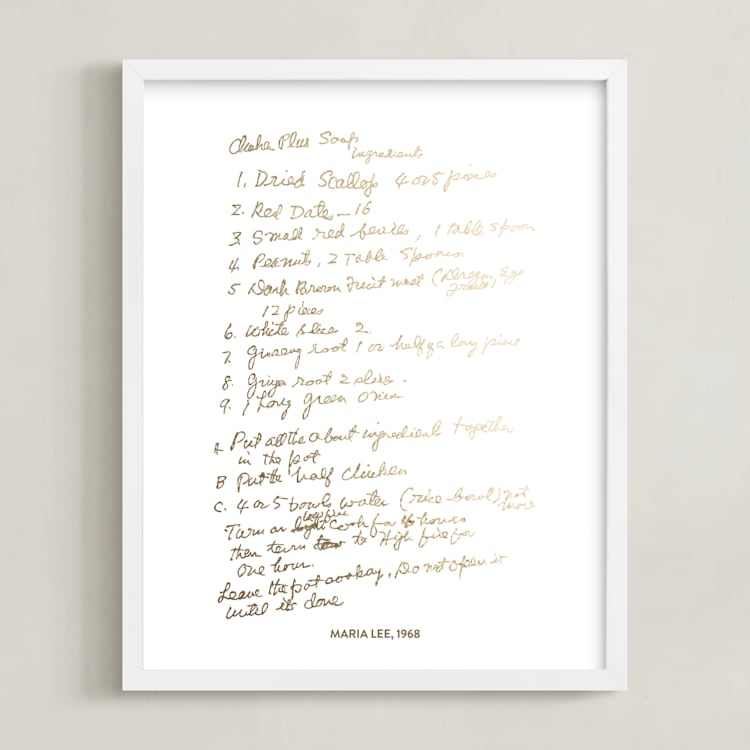 Plus Soup
ingredients
1. Dried Scallop 4 or 5 pieces
2. Red Dates - 16
3. Small red berries, 1 table spoon
4. Peanuts, 2 Table Spoons
5 Dark Brown Fruit meat (Dragon Eye
12 pieces
6. White slice 2.
7. Ginseng root 1 or half of a long piece
8. Ginger root 2 slice.
9. 1 Long green onion
A. Put all the about ingredients together
in the pot
B Put the half Chicken
C. 4 or 5 bowls water (rice bowl) not
more
Turn on low fire Cook for hours
then turn to High fire for
one hour.
Leave the pot, Do not open it
until its done
MARIA LEE, 1968